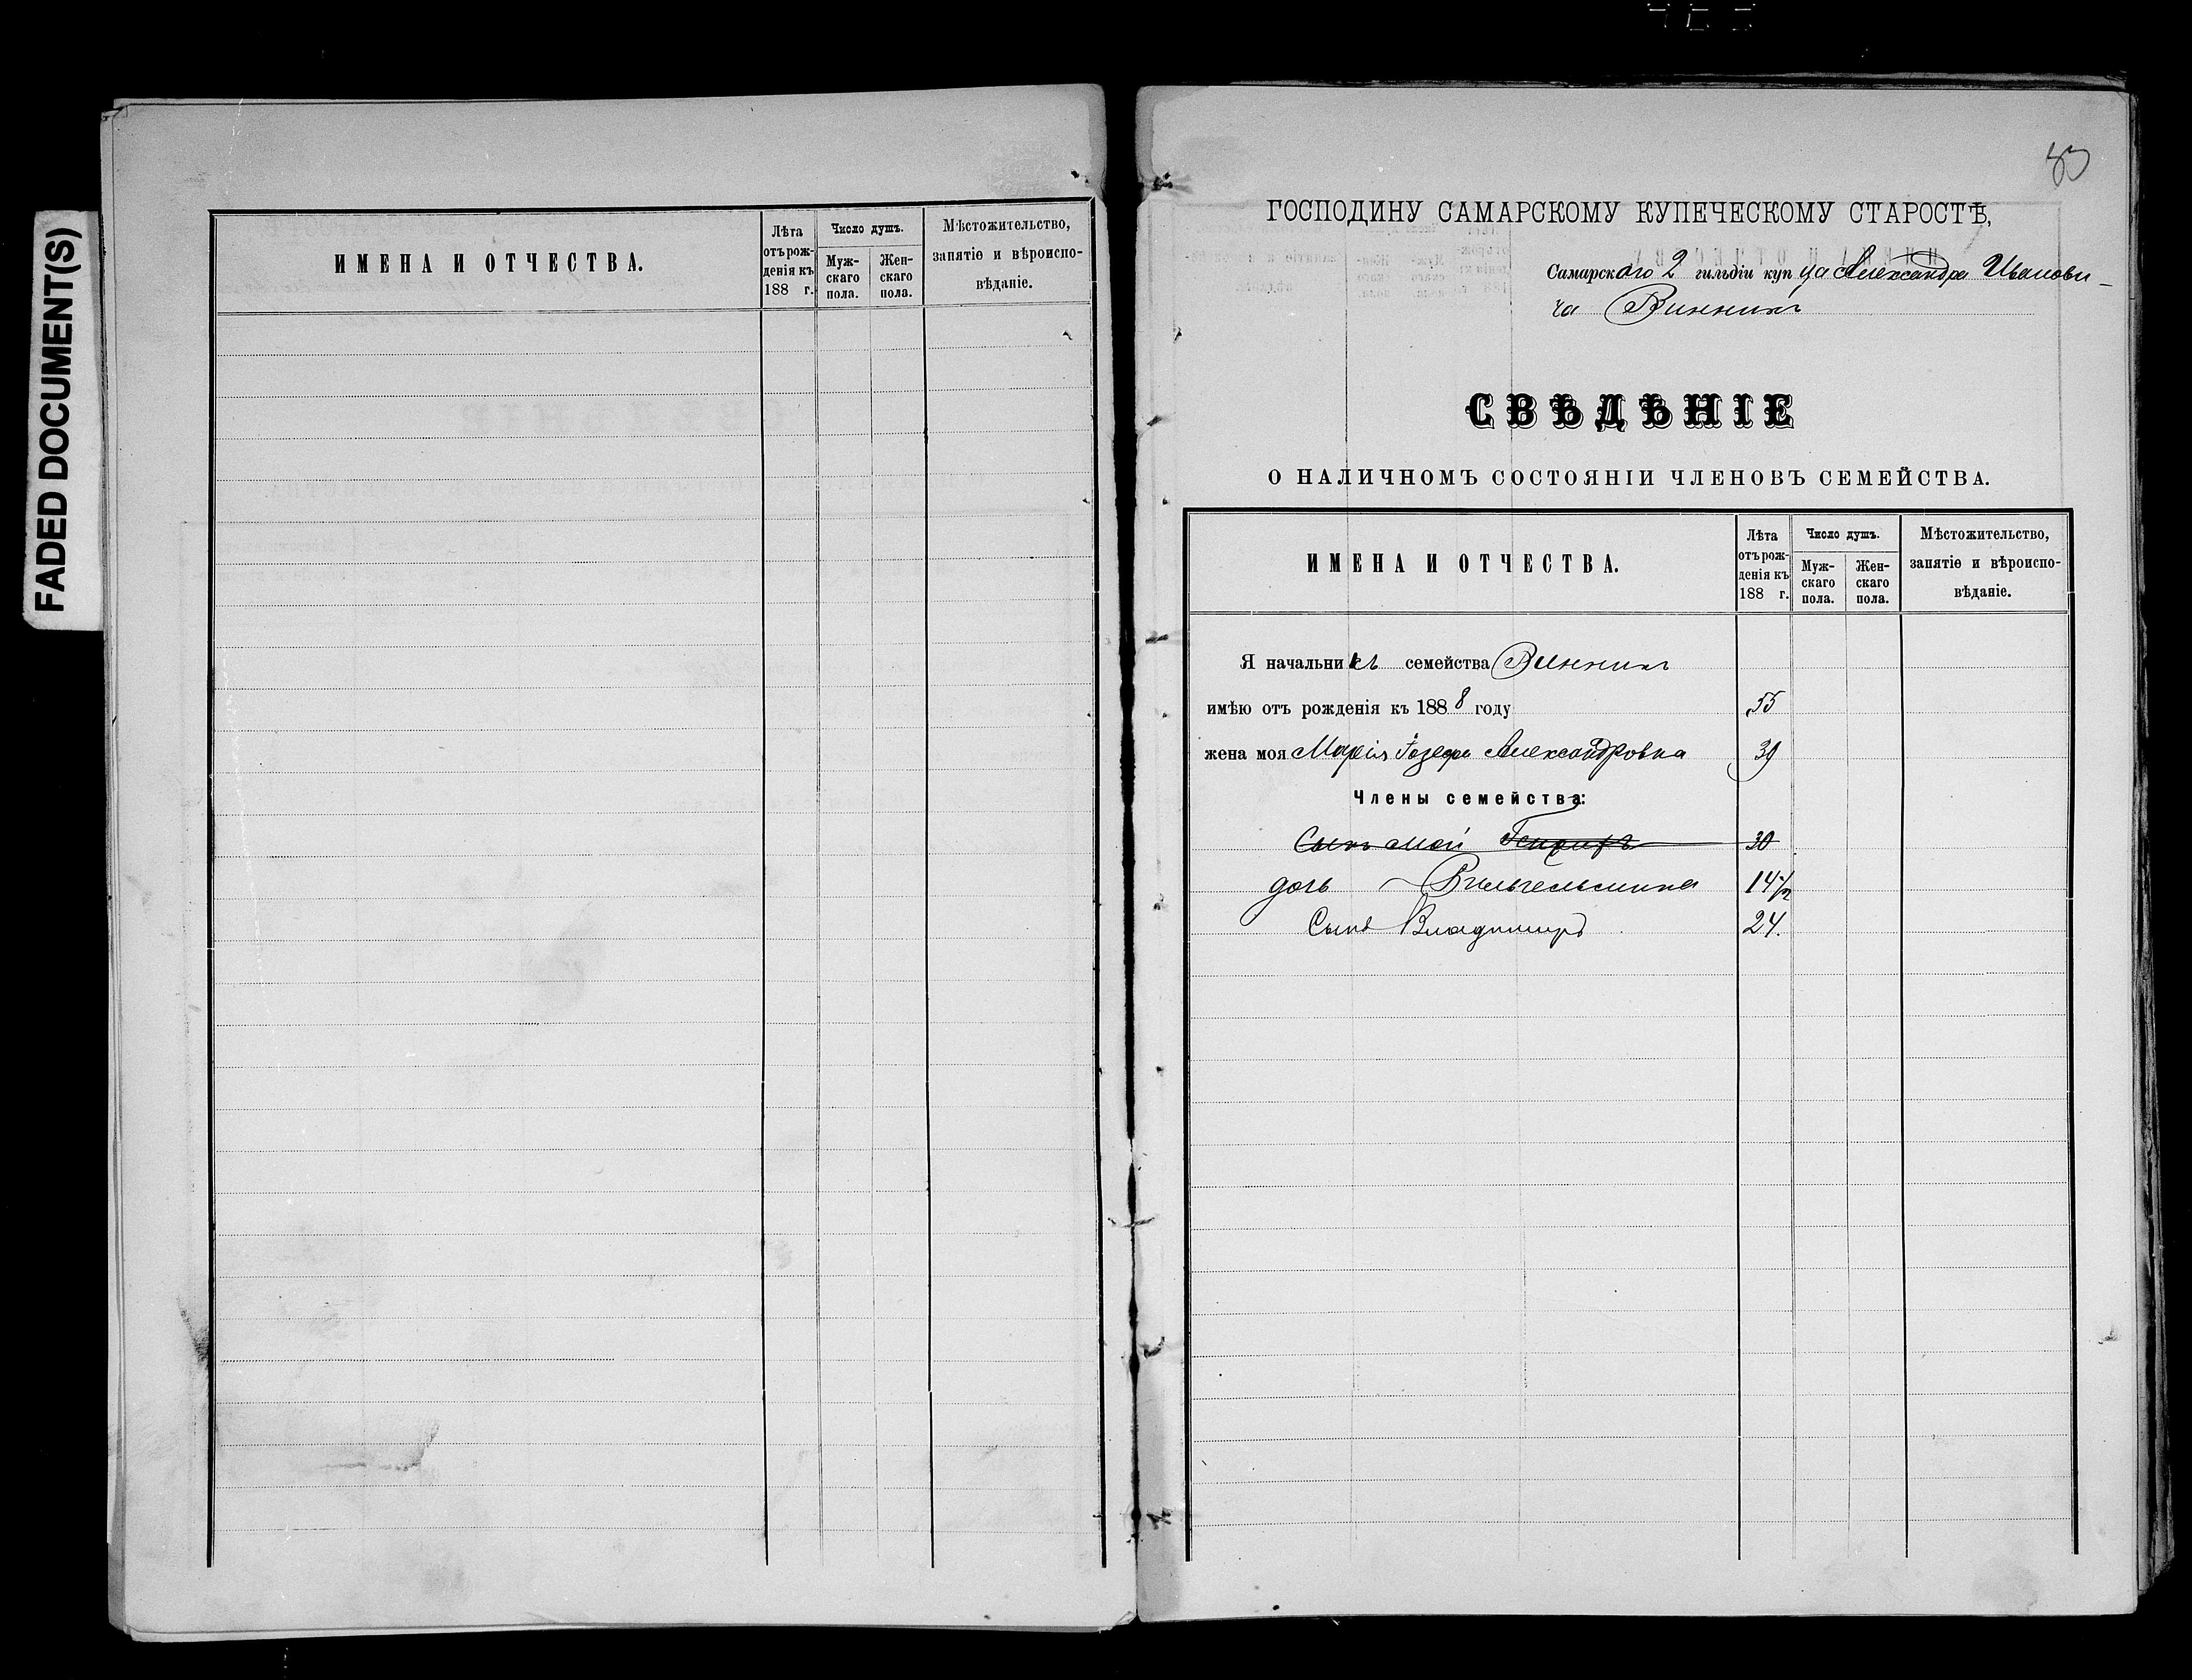 FADED DOCUMENT(S)
ИМЕНА И ОТЧЕСТВА.
Лѣта
отъ рож-
денія къ
188 г.
Число душъ.
Муж-
скаго
пола.
Жен-
скаго
пола.
Мѣстожительство,
занятіе и вѣроиспо-
вѣданіе.
ГОСПОДИНУ САМАРСКОМУ КУПЕЧЕСКОМУ СТАРОСТѢ,
Самарскаго 2 гильдіи купца Александра Иванови-
ча Винникъ
СВѢДѢНІЕ
О НАЛИЧНОМЪ СОСТОЯНІИ ЧЛЕНОВЪ СЕМЕЙСТВА.
ИМЕНА И ОТЧЕСТВА.
Лѣта
отъ рож-
денія къ
188 г.
Число душъ.
Муж-
скаго
пола.
Жен-
скаго
пола.
Мѣстожительство,
занятіе и вѣроиспо-
вѣданіе.
Я начальникъ семейства Винникъ
имѣю отъ рожденія къ 1888 году 55
жена моя Марія Александровна 39
Члены семейства:
Сынъ мой 30
дочь Вильгельмина 14 1/2
Сынъ Владимиръ 24.